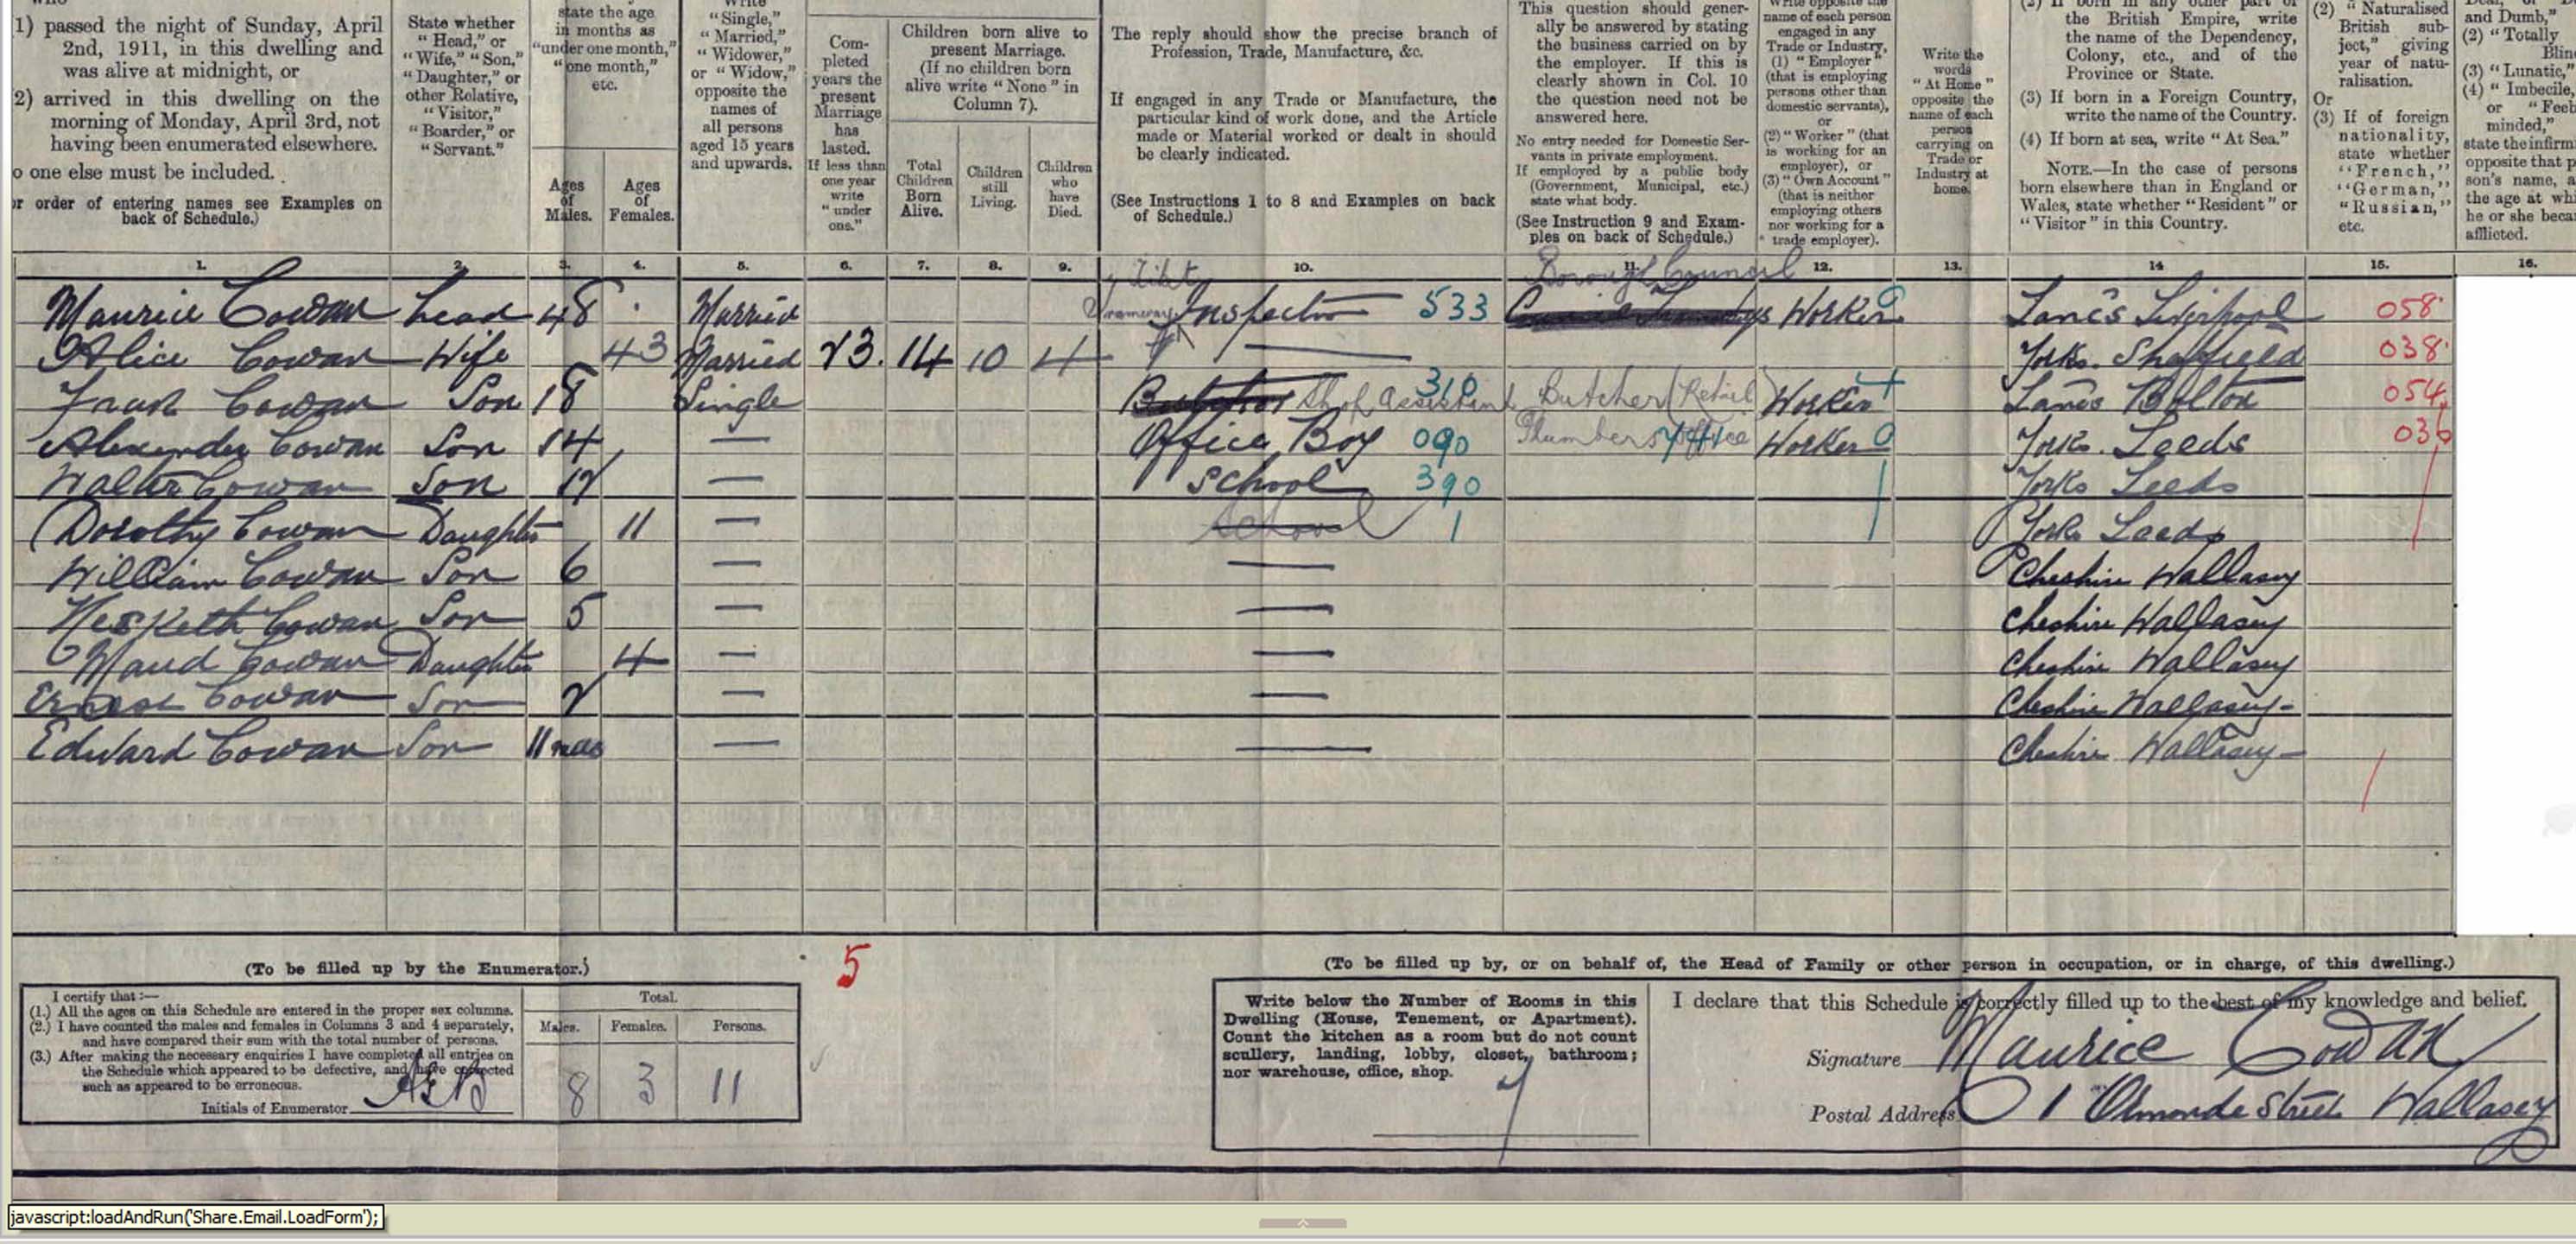 1) passed the night of Sunday, April
2nd, 1911, in this dwelling and
was alive at midnight, or
2) arrived in this dwelling on the
morning of Monday, April 3rd, not
having been enumerated elsewhere.
o one else must be included.
or order of entering names see Examples on
back of Schedule.)
State whether
"Head," or
"Wife," "Son,"
"Daughter," or
other Relative,
"Visitor,"
"Boarder," or
"Servant."
state the age
in months as
"under one month,"
"one month,"
etc.
Ages
of
Males.
Ages
of
Females.
Write
"Single,"
"Married,"
"Widower,"
or "Widow,"
opposite the
names of
all persons
aged 15 years
and upwards.
Com-
pleted
years the
present
Marriage
has
lasted.
If less than
one year
write
"under
one."
Children born alive to
present Marriage.
(If no children born
alive write "None" in
Column 7).
Total
Children
Born
Alive.
Children
still
Living.
Children
who
have
Died.
The reply should show the precise branch of
Profession, Trade, Manufacture, &c.
If engaged in any Trade or Manufacture, the
particular kind of work done, and the Article
made or Material worked or dealt in should
be clearly indicated.
(See Instructions 1 to 8 and Examples on back
of Schedule.)
This question should gener-
ally be answered by stating
the business carried on by
the employer. If this is
clearly shown in Col. 10
the question need not be
answered here.
No entry needed for Domestic Ser-
vants in private employment.
If employed by a public body
(Government, Municipal, etc.)
state what body.
(See Instruction 9 and Exam-
ples on back of Schedule.)
Write opposite the
name of each person
engaged in any
Trade or Industry,
(1) "Employer"
(that is employing
persons other than
domestic servants),
or
(2) "Worker" (that
is working for an
employer), or
(3) "Own Account"
(that is neither
employing others
nor working for a
trade employer).
Write the
words
"At Home"
opposite the
name of each
person
carrying on
Trade or
Industry at
home.
(2) If born in any other part of
the British Empire, write
the name of the Dependency,
Colony, etc., and of the
Province or State.
(3) If born in a Foreign Country,
write the name of the Country.
(4) If born at sea, write "At Sea."
NOTE.—In the case of persons
born elsewhere than in England or
Wales, state whether "Resident" or
"Visitor" in this Country.
(2) "Naturalised
British sub-
ject," giving
year of natu-
ralisation.
Or
(3) If of foreign
nationality,
state whether
"French,"
"German,"
"Russian,"
etc.
and Dumb,"
(2) "Totally
Blin
(3) "Lunatic,"
(4) "Imbecile,
or "Feeb
minded,"
state the infirm
opposite that p
son's name, a
the age at wh
he or she beca
afflicted.
1. 2. 3. 4. 5. 6. 7. 8. 9. 10. 11. 12. 13. 14 15. 16.
Ticket Borough Council
Maurice Cowan head 48 Married Tramways Inspector 533 Worker Lancs Liverpool 058
Alice Cowan Wife 43 Married 23. 14 10 4 — Yorks. Sheffield 038
Frank Cowan Son 18 Single Shop Assistant 310 Butcher (Retail) Worker Lancs Bolton 054
Alexander Cowan Son 14 — Office Boy 090 Plumbers Office Worker Yorks. Leeds 036
Walter Cowan Son 12 — School 390 Yorks Leeds
Dorothy Cowan Daughter 11 — School Yorks Leeds
William Cowan Son 6 — — Cheshire Wallasey
Hesketh Cowan Son 5 — — Cheshire Wallasey
Maud Cowan Daughter 4 — — Cheshire Wallasey
Ernest Cowan Son 2 — — Cheshire Wallasey
Edward Cowan Son 11 mos — — Cheshire Wallasey
(To be filled up by the Enumerator.)
5
I certify that:—
(1.) All the ages on this Schedule are entered in the proper sex columns.
(2.) I have counted the males and females in Columns 3 and 4 separately,
and have compared their sum with the total number of persons.
(3.) After making the necessary enquiries I have completed all entries on
the Schedule which appeared to be defective, and have corrected
such as appeared to be erroneous.
Initials of Enumerator
Total.
Males. Females. Persons.
8 3 11
(To be filled up by, or on behalf of, the Head of Family or other person in occupation, or in charge, of this dwelling.)
Write below the Number of Rooms in this
Dwelling (House, Tenement, or Apartment).
Count the kitchen as a room but do not count
scullery, landing, lobby, closet, bathroom;
nor warehouse, office, shop.
7
I declare that this Schedule is correctly filled up to the best of my knowledge and belief.
Signature Maurice Cowan
Postal Address 1 Ormonde Street Wallasey
javascript:loadAndRun('Share.Email.LoadForm');